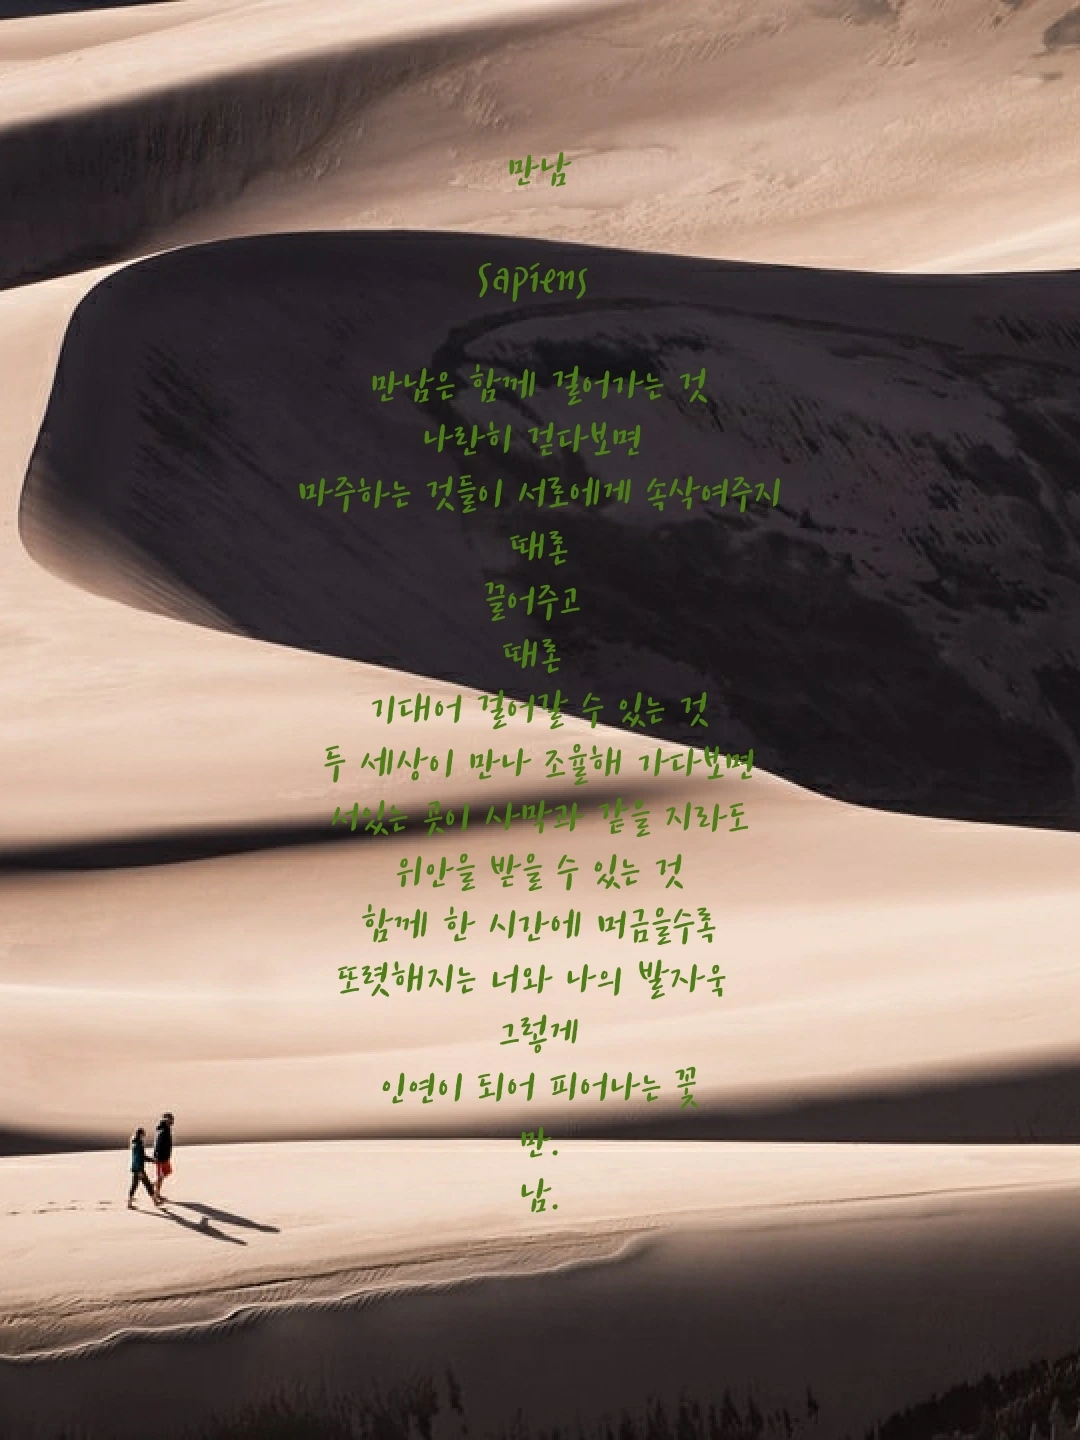 만남
Sapiens
만남은 함께 걸어가는 것
나란히 걷다보면
마주하는 것들이 서로에게 속삭여주지
때론
끌어주고
때론
기대어 걸어갈 수 있는 것
두 세상이 만나 조율해 가다보면
서있는 곳이 사막과 같을 지라도
위안을 받을 수 있는 것
함께 한 시간에 머금을수록
또렷해지는 너와 나의 발자욱
그렇게
인연이 되어 피어나는 꽃
만.
남.